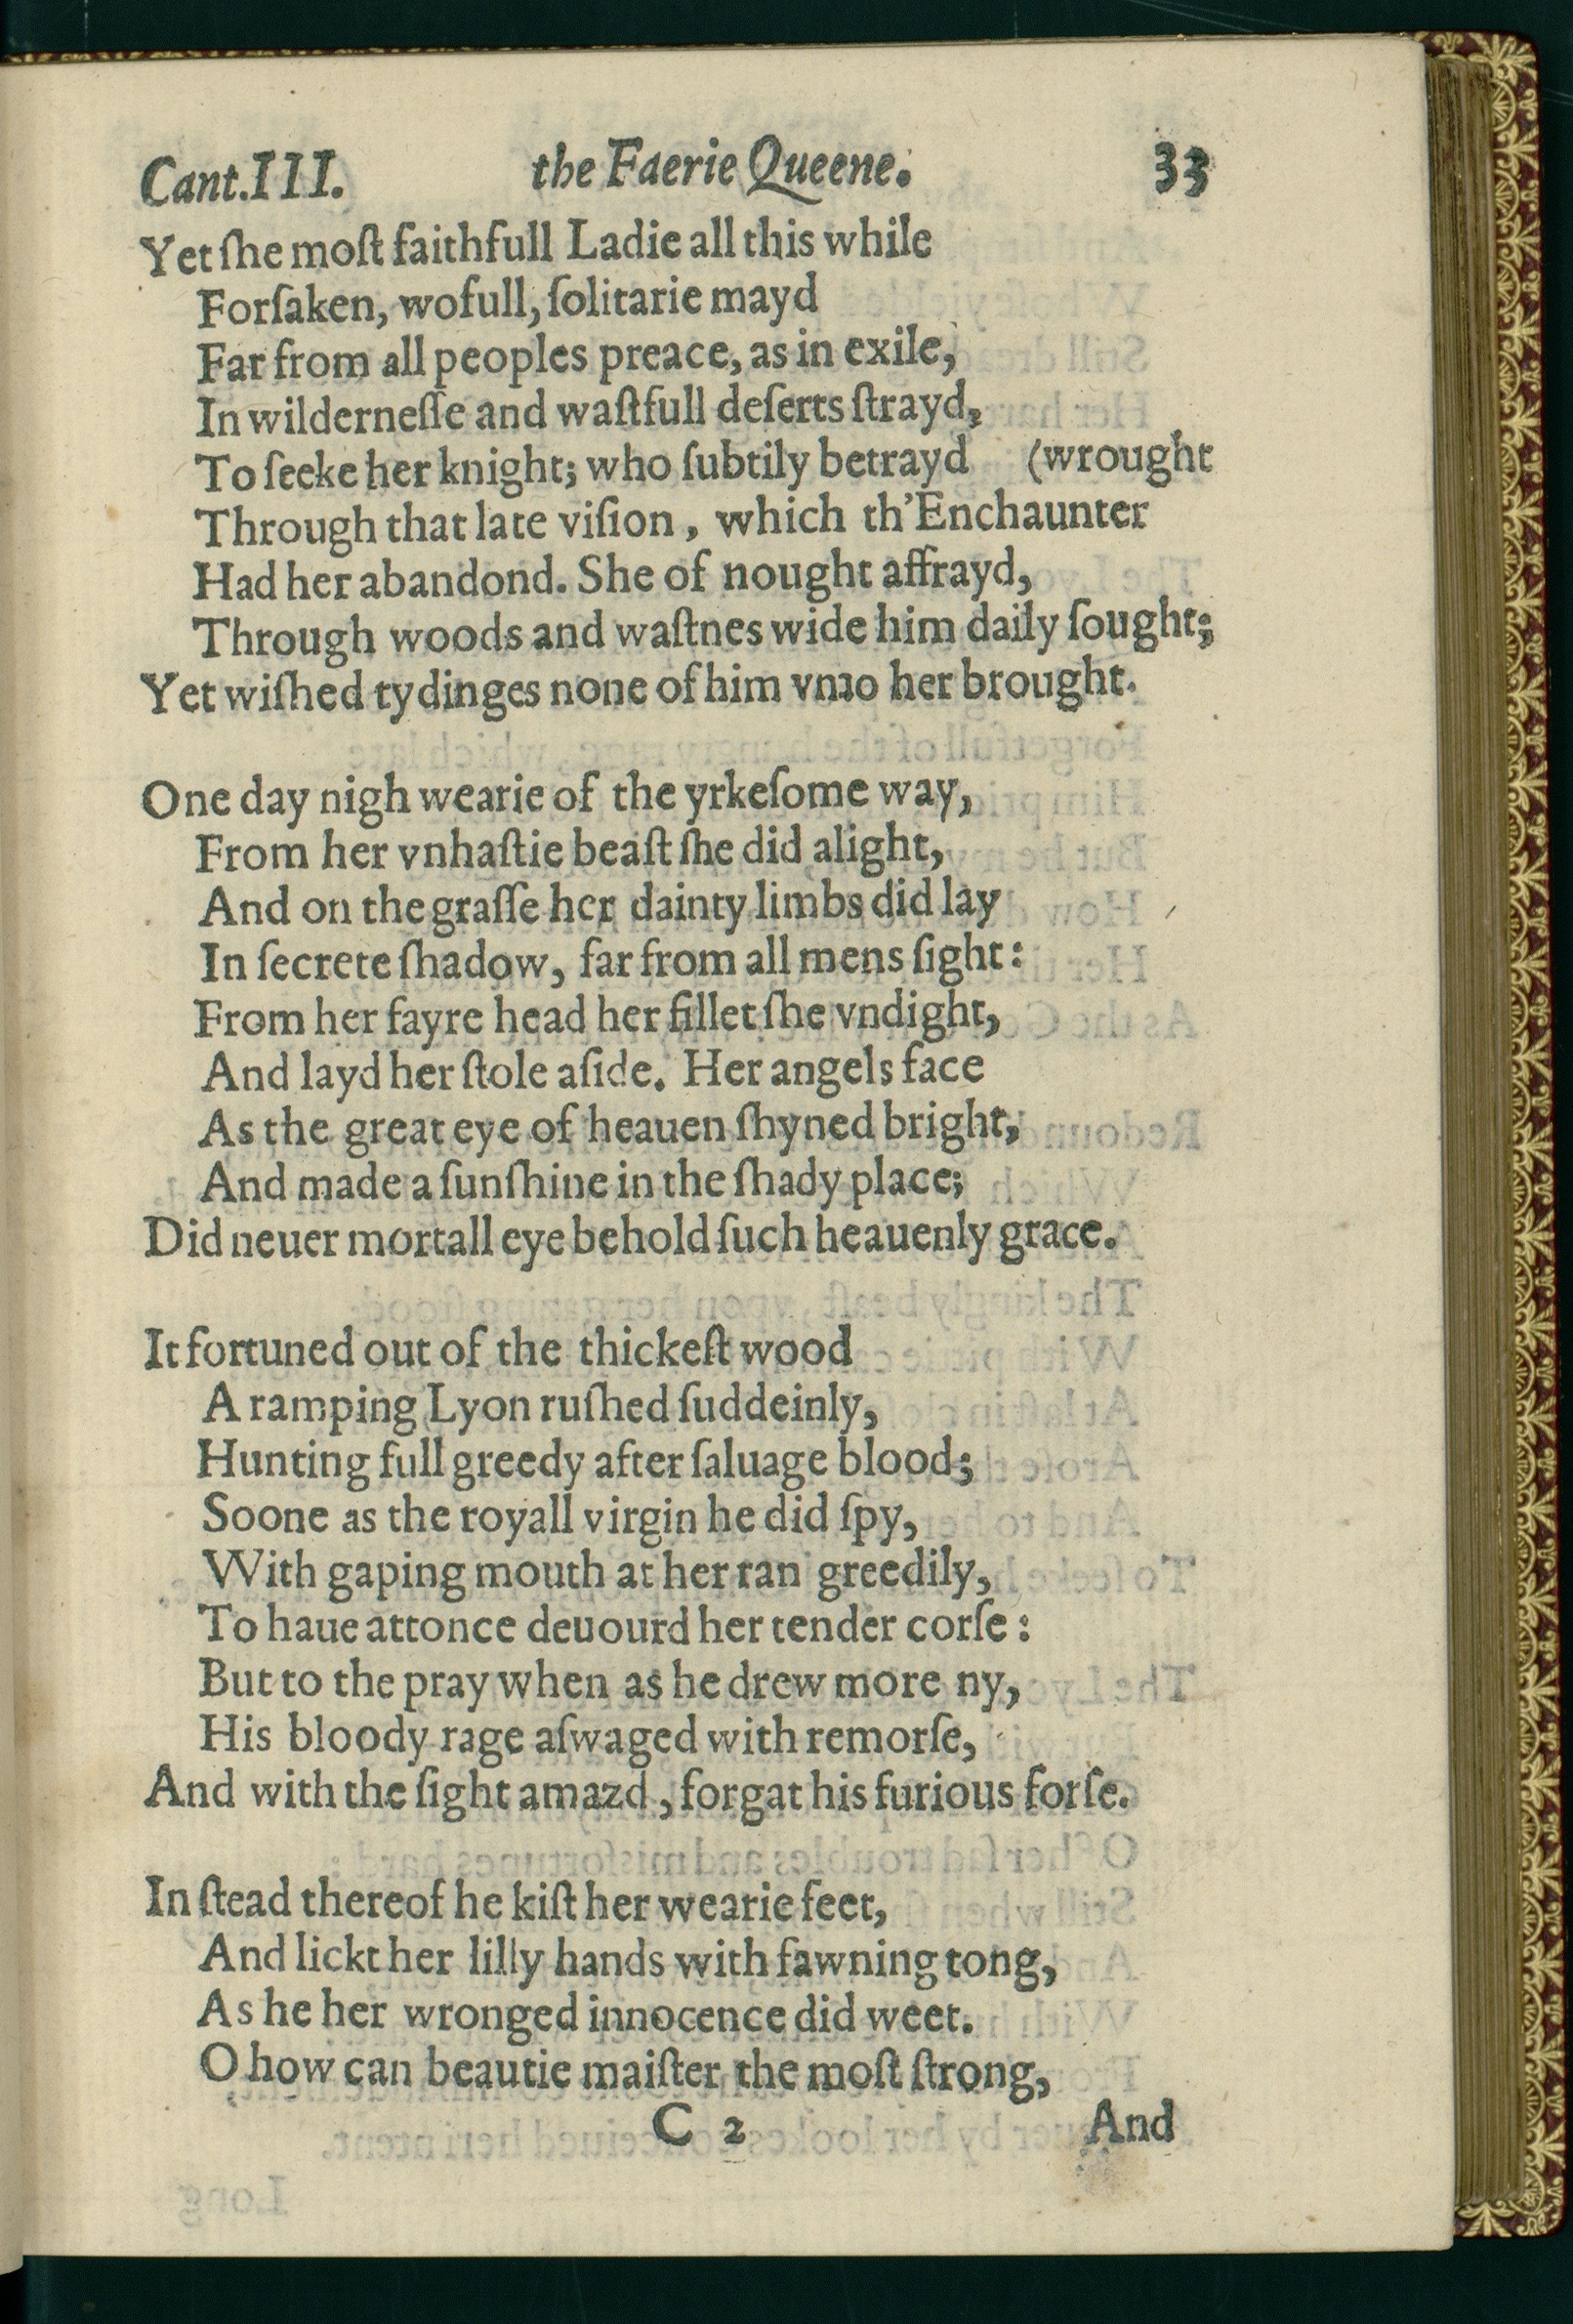 Cant.III. the Faerie Queene. 33
Yet ſhe moſt faithfull Ladie all this while
Forſaken, wofull, ſolitarie mayd
Far from all peoples preace, as in exile,
In wilderneſſe and waſtfull deſerts ſtrayd,
To ſeeke her knight; who ſubtily betrayd (wrought
Through that late viſion, which th'Enchaunter
Had her abandond. She of nought affrayd,
Through woods and waſtnes wide him daily ſought;
Yet wiſhed tydinges none of him vnto her brought.
One day nigh wearie of the yrkeſome way,
From her vnhaſtie beaſt ſhe did alight,
And on the graſſe her dainty limbs did lay
In ſecrete ſhadow, far from all mens ſight:
From her fayre head her fillet ſhe vndight,
And layd her ſtole aſide. Her angels face
As the great eye of heauen ſhyned bright,
And made a ſunſhine in the ſhady place;
Did neuer mortall eye behold ſuch heauenly grace.
It fortuned out of the thickeſt wood
A ramping Lyon ruſhed ſuddeinly,
Hunting full greedy after ſaluage blood;
Soone as the royall virgin he did ſpy,
With gaping mouth at her ran greedily,
To haue attonce deuourd her tender corſe:
But to the pray when as he drew more ny,
His bloody rage aſwaged with remorſe,
And with the ſight amazd, forgat his furious forſe.
In ſtead thereof he kiſt her wearie feet,
And lickt her lilly hands with fawning tong,
As he her wronged innocence did weet.
O how can beautie maiſter the moſt ſtrong,
C 2 And